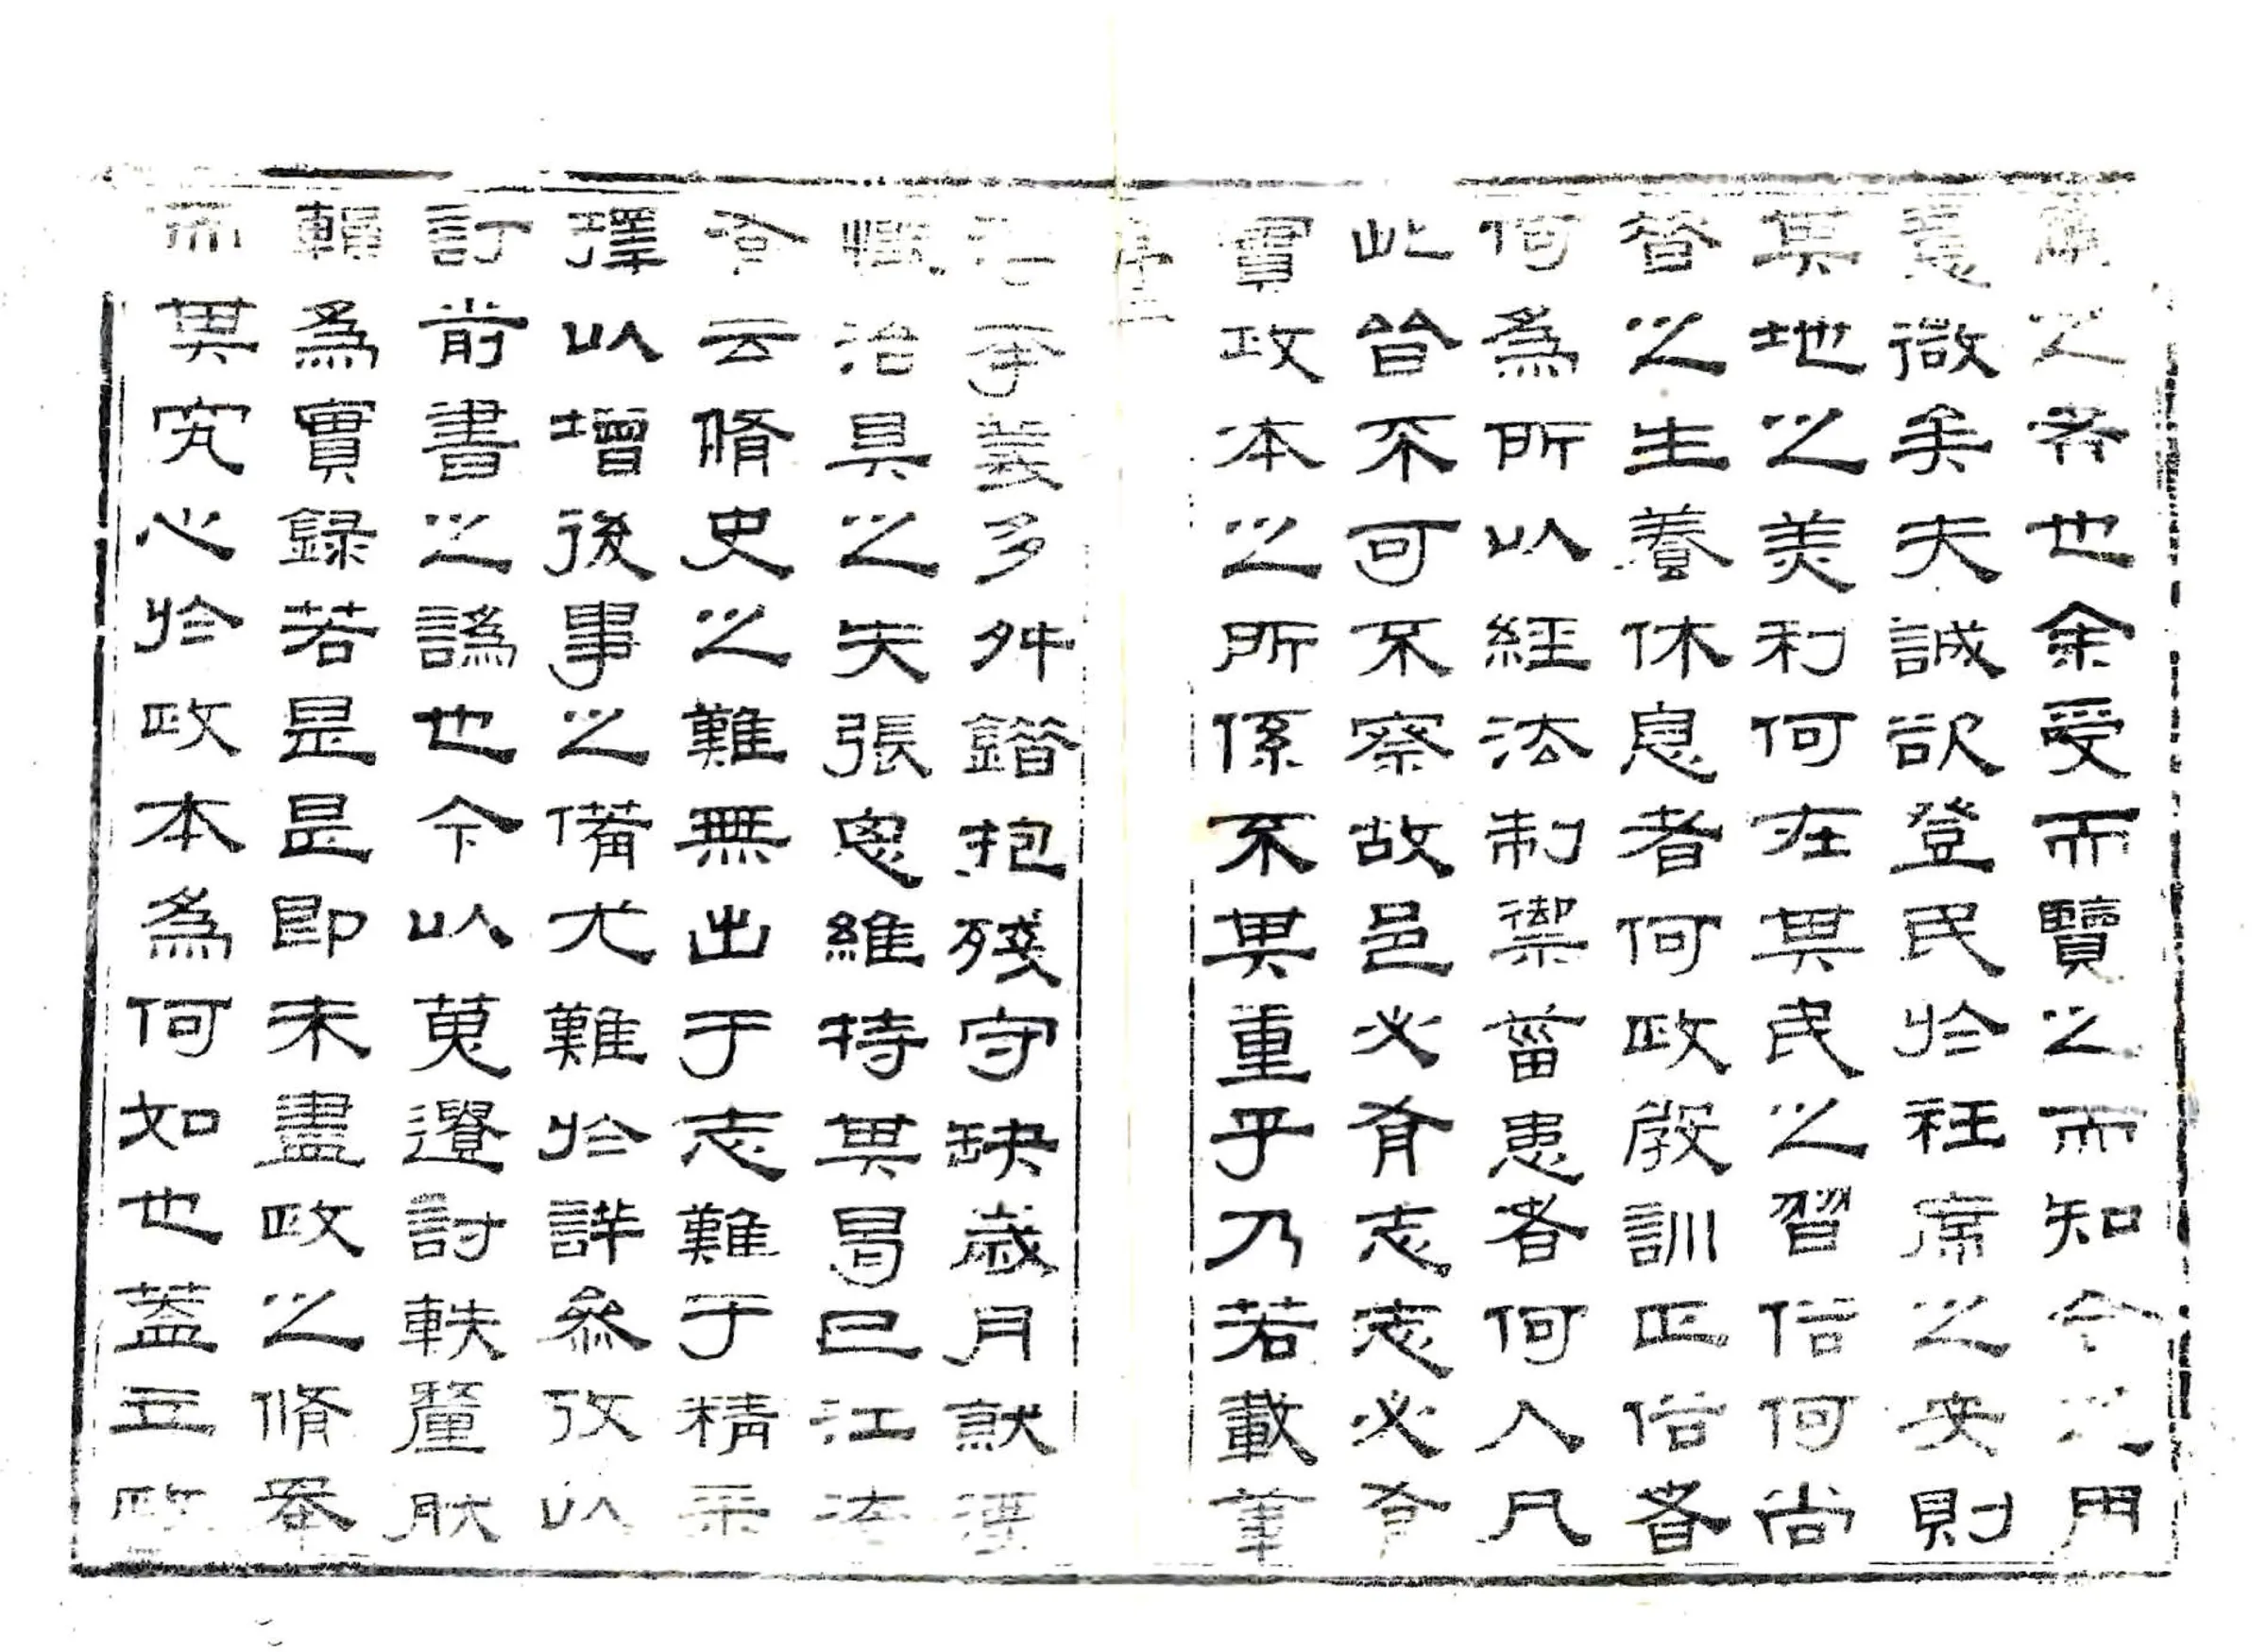 之者也余受而覽之而知今之用
意微矣夫誠欲登民於衽席之安則
其地之美利何在其民之習俗何尚
昔之生養休息者何政教訓正俗者
何為所以經法制禦菑患者何人凡
此皆不可不察故邑必有志志必有
實政本之所係不其重乎乃若載筆
序二
乎義多舛錯抱殘守缺歲月就湮
慨治具之失張思維持其曷已江法
脩史之難無出于志難于精采
擇以增後事之備尤難於詳參攷以
訂前書之譌也今以蒐遺討軼釐然
輯為實錄若是是即未盡政之脩舉
而其究心於政本為何如也蓋立政